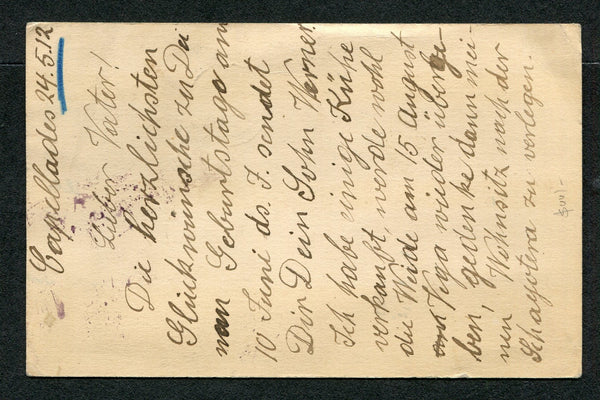 Capellades 24.5.12
Lieber Vater!
Die herzlichsten
Glückwünsche zu Dei
nem Geburtstage am
10 Juni ds. J. sendet
Dir Dein Sohn Werner.
Ich habe einige Kühe
verkauft, werde wohl
die Weide am 15 August
Viga wieder überge-
ben, gedenke dann mei-
nen Wohnsitz nach der
Chayotera zu verlegen.